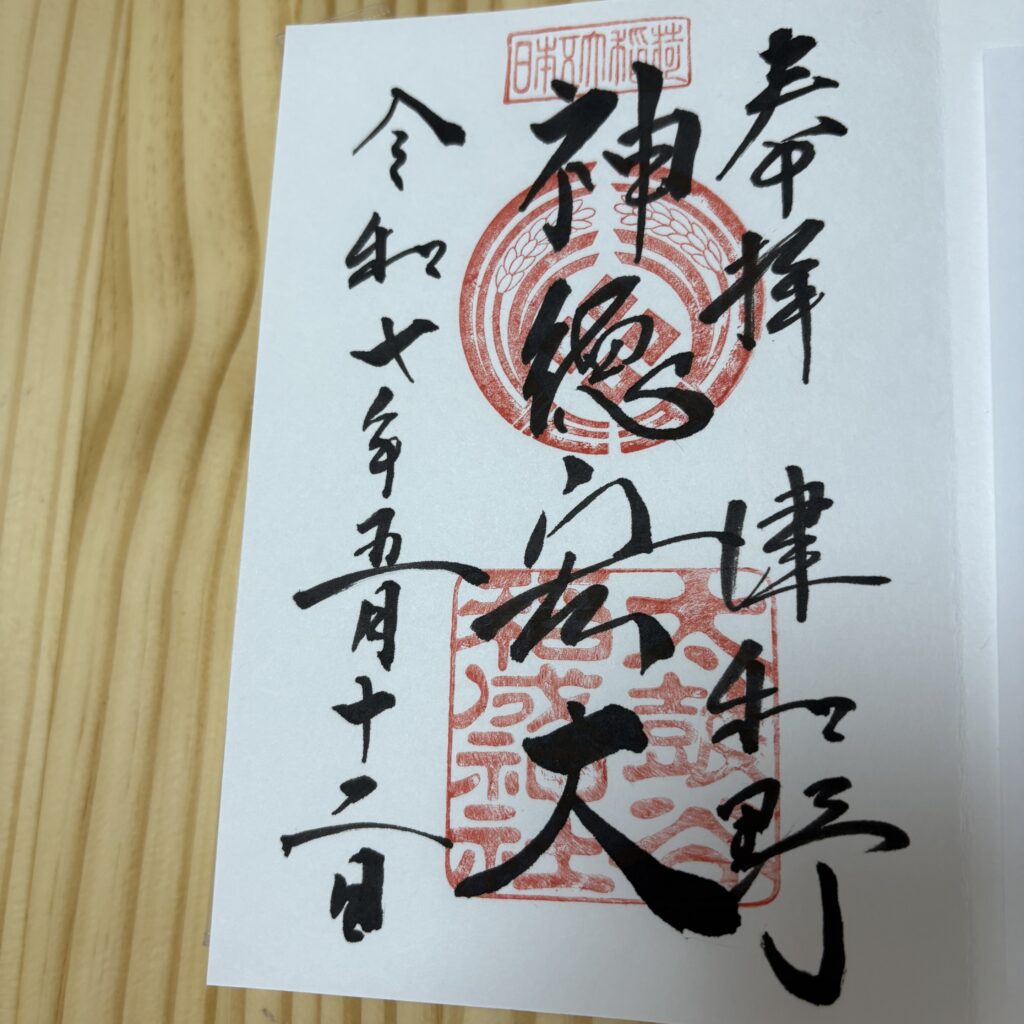 奉拝　津和野
日本五大稲荷
神徳宏大
太鼓谷
稲成神社
令和七年五月十二日